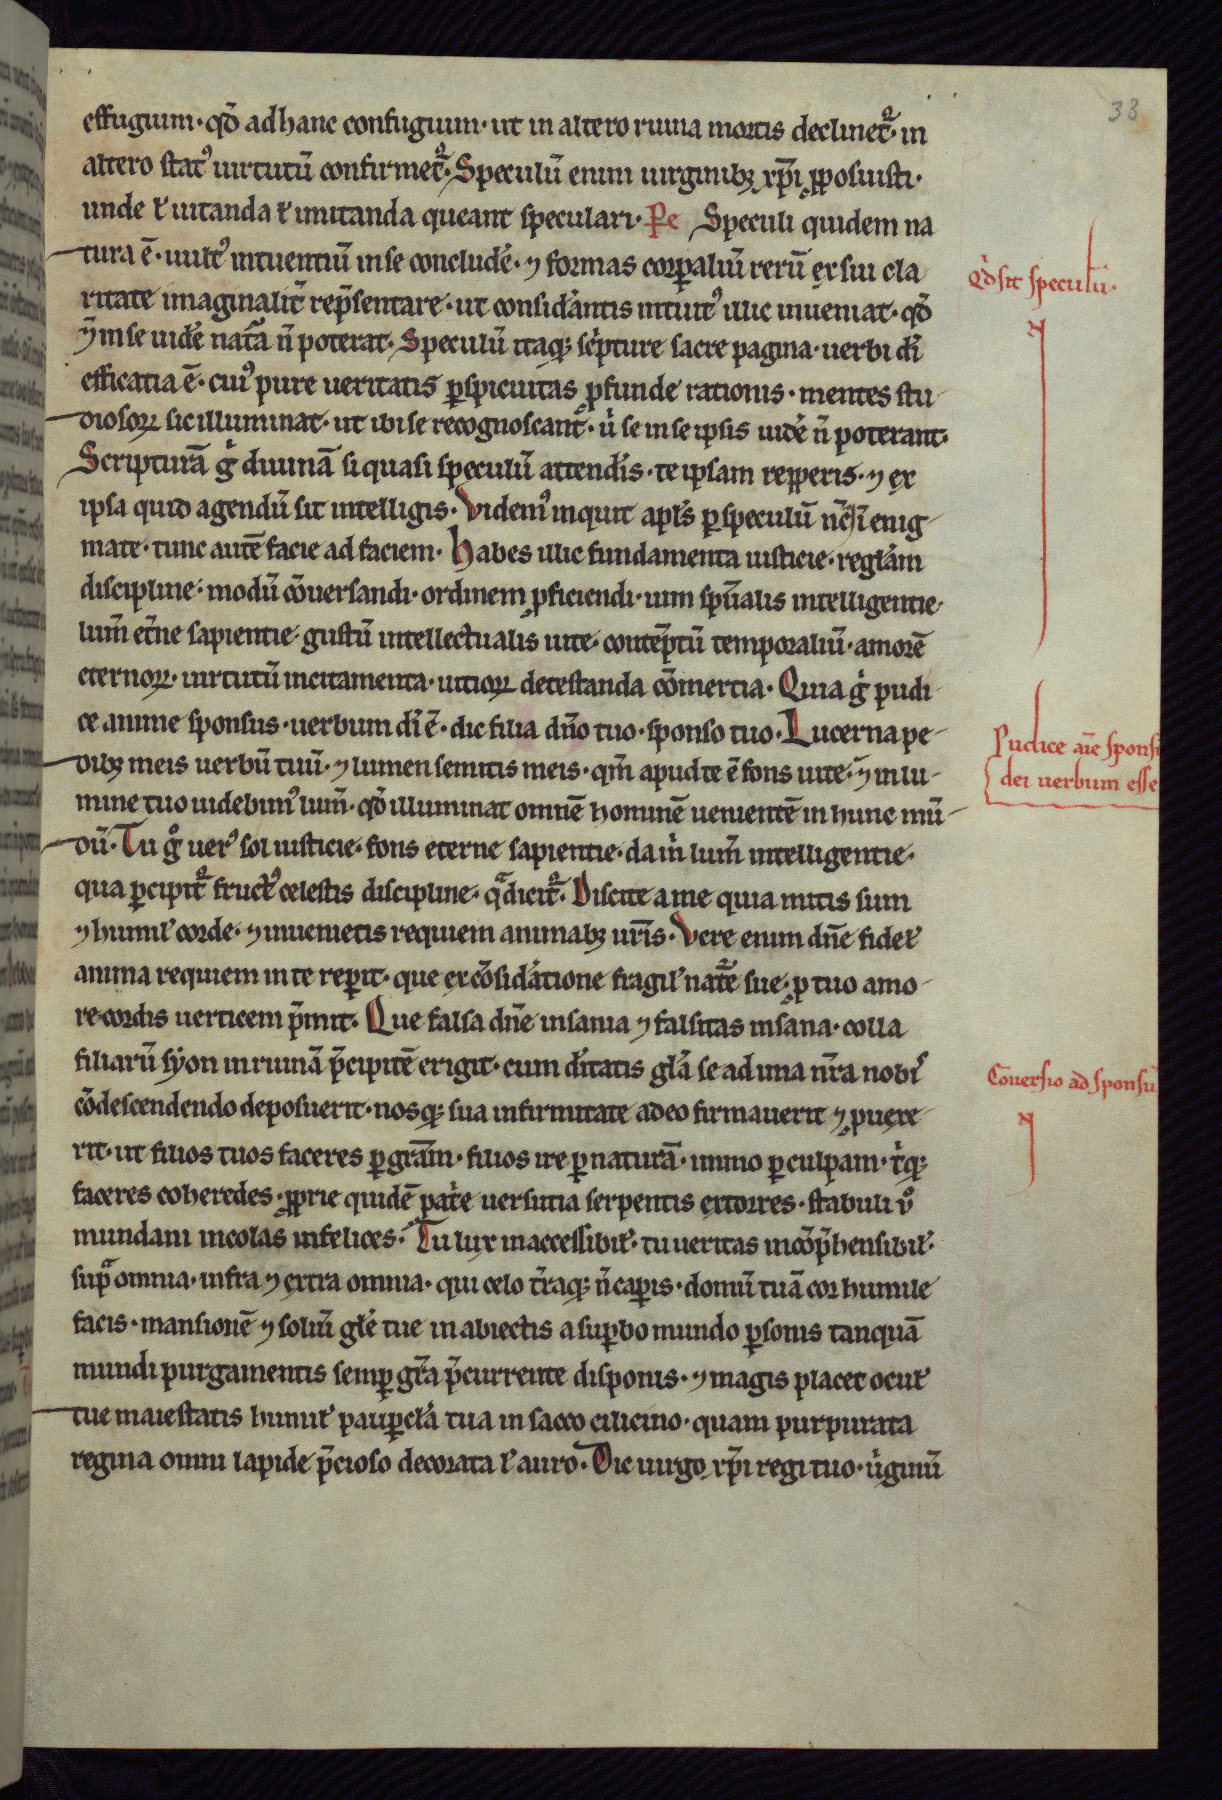 33
effugium· qd̄ ad hanc confugium· ut in altero ruina mortis declinet᷑· in
altero stat᷒ uirtutū confirmet᷑· Speculū enim uirginibꝫ xp̄i ꝓposuisti·
unde ł uitanda ł imitanda queant speculari· Pe Speculi quidem na
tura ē· uult᷒ intuentiū in se concludē· ⁊ formas corꝑaliū rerū ex sui cla
ritate imaginalit̄ rep̄sentare· ut considātis intuit᷒ illic inueniat· qd̄
ī se uidē nat̄a n̄ poterat· Speculū itaqꝫ sc̓pture sacre pagina· uerbi dī
efficatia ē· cui᷒ pure ueritatis ꝑspicuitas ꝓfunde rationis· mentes stu
diosoꝝ sic illuminat· ut ibi se recognoscant· u̓ se in se ipsis uidē n̄ poterant·
Scripturā g̓ diuinā si quasi speculū attendis· te ipsam repperis· ⁊ ex
ipsa quid agendū sit intelligis· Videm᷒ inquit apl̄s ꝑ speculū nc̄ ī enig
mate· tunc autē facie ad faciem· Habes illic fundamenta iusticie· reglām
discipline· modū cōuersandi· ordinem ꝓficiendi· uim sp̄ualis intelligentie·
lum̄ et̄ne sapientie· gustū intellectualis uite· contēptū temporaliū· amorē
eternoꝝ· uirtutū incitamenta· uitioꝝ detestanda cōmertia· Quia g̓ pudi
ce anime sponsus· uerbum dī ē· dic filia dn̄o tuo· sponso tuo· Lucerna pe
dibꝫ meis uerbū tuū· ⁊ lumen semitis meis· qm̄ apud te ē fons uite· ⁊ in lu
mine tuo uidebim᷒ lum̄· qd̄ illuminat omnē hominē uenientē in hunc mū
dū· Tu g̊ uer᷒ sol iusticie· fons eterne sapientie· da m̓ lum̄ intelligentie·
qua ꝑcipit᷑ fruct᷒ celestis discipline· qͣ dicit᷑· Discite a me quia mitis sum
⁊ humił corde· ⁊ inuenietis requiem animabꝫ ur̄is· Vere enim dn̄e fideł
anima requiem in te reꝑit· que ex cōsidātione fragił nat̄e sue· ꝓ tuo amo
re cordis uerticem p̄mit· Que falsa dn̄e insania ⁊ falsitas insana· colla
filiarū syon in ruinā p̄cipitē erigit· cum dītatis glā se ad ima nr̄a nobi᷒
cōdescendendo deposuerit· nosqꝫ sua infirmitate adeo firmauerit ⁊ ꝓuexe
rit· ut filios tuos faceres ꝑ gram̄· filios ire ꝑ naturā· immo ꝑ culpam· t̓qꝫ
faceres coheredes· ꝓprie quidē pat̓e uersutia serpentis extorres· stabuli ů
mundani incolas infelices· Tu lux inaccessibił· tu ueritas incōp̄hensibił·
supͣ omnia· infra ⁊ extra omnia· qui celo t̄raqꝫ n̄ caꝑis· domū tuā cor humile
facis· mansionē ⁊ soliū glē tue in abiectis a suꝑbo mundo ꝑsonis tanquā
mundi purgamentis semꝑ gr̄a p̄currente disponis· ⁊ magis placet ocuł
tue maiestatis humił pauꝑclā tua in sacco cilicino· quam purpurata
regina omni lapide p̄cioso decorata ł auro· Dic uirgo xp̄i regi tuo· u̓ginū
Qd̓ sit speculū·
Pudice aīe sponsū
dei uerbum esse
Cōuersio ad sponsū